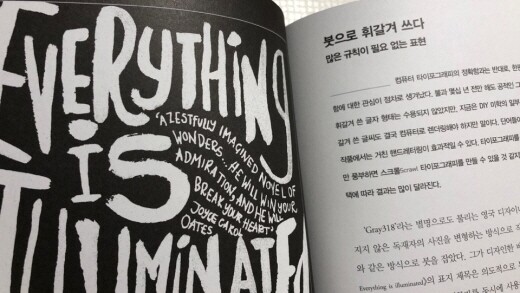 EVERYTHING
IS
ILLUMINATED
'A ZESTFULLY IMAGINED NOVEL OF
WONDERS... HE WILL WIN YOUR
ADMIRATION, AND HE WILL
BREAK YOUR HEART'
JOYCE CAROL
OATES
붓으로 휘갈겨 쓰다
많은 규칙이 필요 없는 표현
컴퓨터 타이포그래피의 정확함과는 반대로, 한편
함에 대한 관심이 점차로 생겨났다. 불과 몇십 년 전만 해도 공적인 그
휘갈겨 쓴 글자 형태는 수용되지 않았지만, 지금은 DIY 미학의 일부
갈겨 쓴 글씨도 결국 컴퓨터로 렌더링해야 하지만 말이다. 단어들이
작품에서는 거친 핸드레터링이 효과적일 수 있다.
만 풍부하면 스크롤Scrawl 타이포그래피를 만들 수 있을 것 같지
택에 따라 결과는 많이 달라진다.
'Gray318'라는 별명으로도 불리는 영국 디자이너
지지 않은 독재자의 사진을 변형하는 방식으로
와 같은 방식으로 붓을 잡았다. 그가 디자인한
Everything is illuminated》의 표지 제목은 의도적으로
동시에 사용